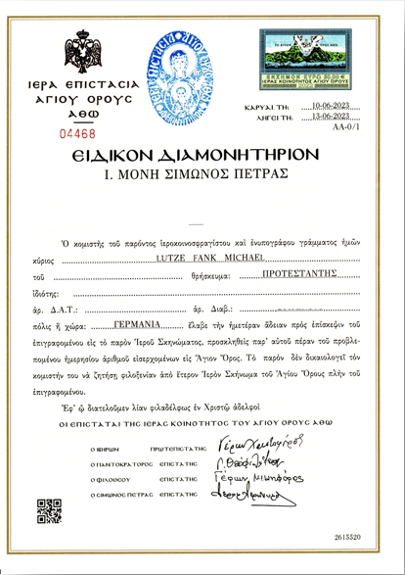 ΙΕΡΑ ΕΠΙΣΤΑΣΙΑ
ΑΓΙΟΥ ΟΡΟΥΣ
ΑΘΩ
04468
ΙΕΡΑ ΕΠΙΣΤΑΣΙΑ ΑΓΙΟΥ ΟΡΟΥΣ
ΙΕΡΑΣ ΚΟΙΝΟΤΗΤΟΣ ΑΓΙΟΥ ΟΡΟΥΣ
ΚΑΡΥΑΙ ΤΗ: 10-06-2023
ΛΗΓΕΙ ΤΗ: 13-06-2023
ΑΑ-0/1
ΕΙΔΙΚΟΝ ΔΙΑΜΟΝΗΤΗΡΙΟΝ
Ι. ΜΟΝΗ ΣΙΜΩΝΟΣ ΠΕΤΡΑΣ
Ὁ κομιστὴς τοῦ παρόντος ἱεροκοινοσφραγίστου καὶ ἐνυπογράφου γράμματος ἡμῶν
κύριος LUTZE FANK MICHAEL
τοῦ θρήσκευμα: ΠΡΟΤΕΣΤΑΝΤΗΣ
ἰδιότης:
ἀρ. Δ.Α.Τ.: ἀρ. Διαβ.:
πόλις ἢ χώρα: ΓΕΡΜΑΝΙΑ ἔλαβε τὴν ἡμετέραν ἄδειαν πρὸς ἐπίσκεψιν τοῦ
ἐπιγραφομένου εἰς τὸ παρὸν Ἱεροῦ Σκηνώματος, προσκληθεὶς παρ' αὐτοῦ πέραν τοῦ προβλε-
πομένου ἡμερησίου ἀριθμοῦ εἰσερχομένων εἰς Ἅγιον Ὄρος. Τὸ παρὸν δὲν δικαιολογεῖ τὸν
κομιστήν του νὰ ζητήσῃ φιλοξενίαν ἀπὸ ἕτερον Ἱερὸν Σκήνωμα τοῦ Ἁγίου Ὄρους πλὴν τοῦ
ἐπιγραφομένου.
Ἐφ' ᾧ διατελοῦμεν λίαν φιλαδέλφως ἐν Χριστῷ ἀδελφοὶ
ΟΙ ΕΠΙΣΤΑΤΑΙ ΤΗΣ ΙΕΡΑΣ ΚΟΙΝΟΤΗΤΟΣ ΤΟΥ ΑΓΙΟΥ ΟΡΟΥΣ ΑΘΩ
Ο ΙΒΗΡΩΝ ΠΡΩΤΕΠΙΣΤΑΤΗΣ
Ο ΠΑΝΤΟΚΡΑΤΟΡΟΣ ΕΠΙΣΤΑΤΗΣ
Ο ΦΙΛΟΘΕΟΥ ΕΠΙΣΤΑΤΗΣ
Ο ΣΙΜΩΝΟΣ ΠΕΤΡΑΣ ΕΠΙΣΤΑΤΗΣ
2615520